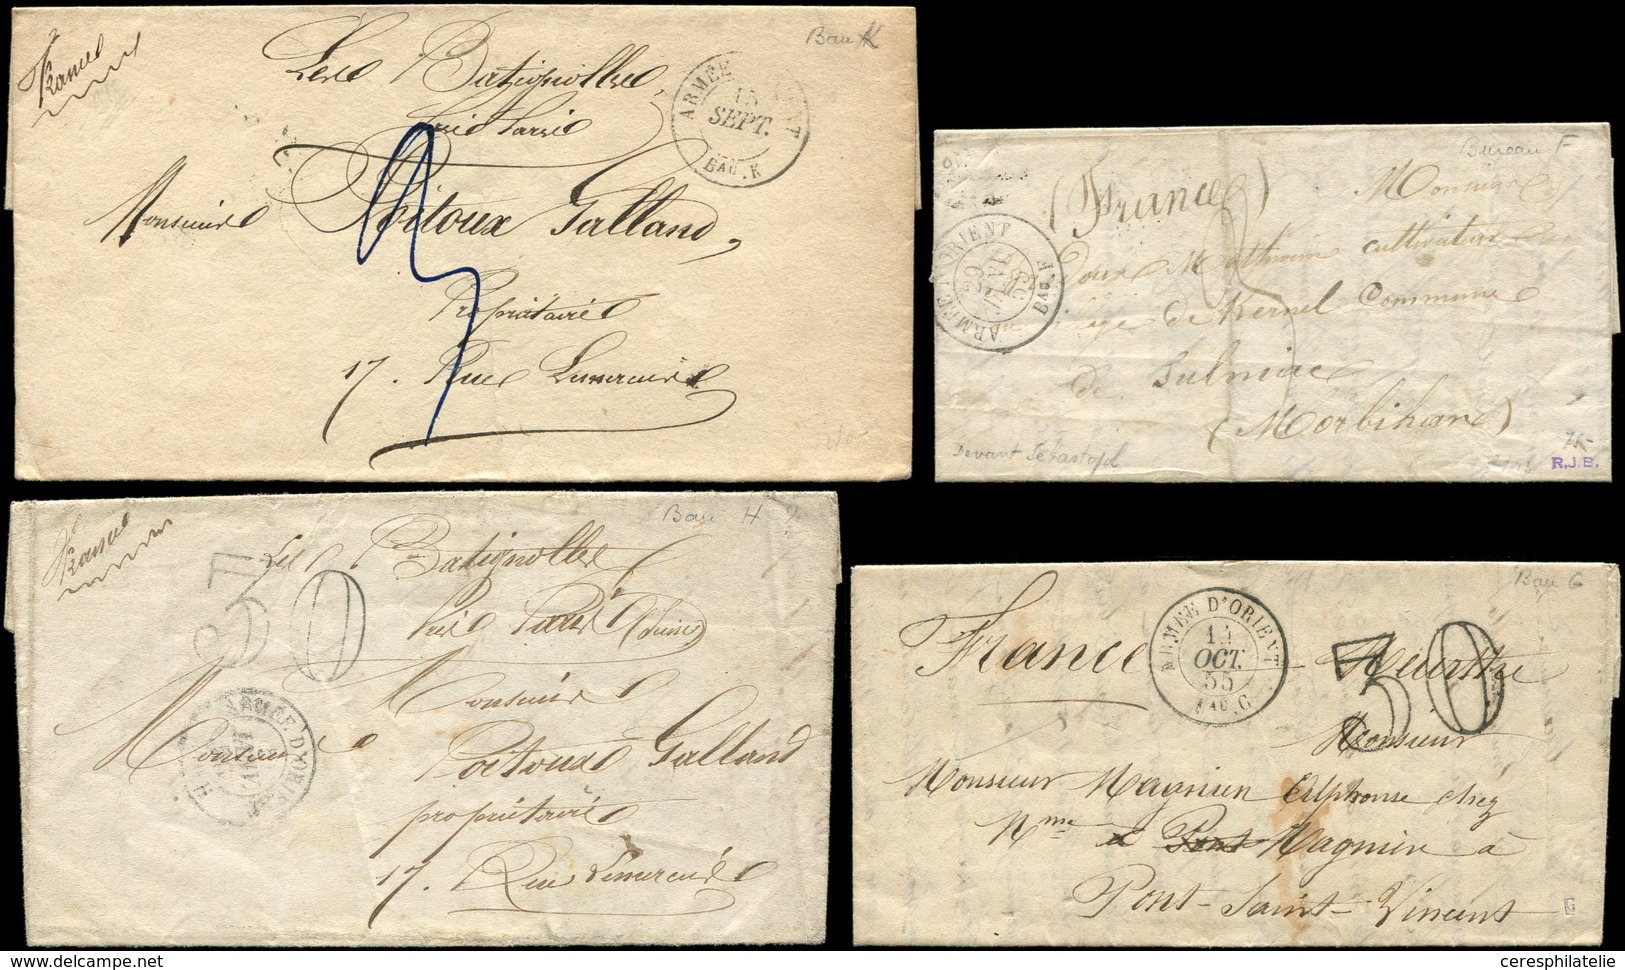 France
Bau K
Les Batignolles,
près Paris
ARMÉE D'ORIENT
15
SEPT.
BAU. K
3
Monsieur Poitoux Galland,
Propriétaire
17. Rue Lemercier
Bureau F
(France)
Monsieur
ARMÉE D'ORIENT
BAU. F
Mathurin cultivateur
village de Kernel Commune
de Sulniac
(Morbihan)
Devant Sébastopol
75-
R.J.B.
France
Bau H ?
30
Les Batignolles
près Paris (Seine)
Monsieur
ARMÉE D'ORIENT
Monsieur
Poitoux Galland
propriétaire
17. Rue Lemercier
Bau G
France
ARMÉE D'ORIENT
OCT.
55
BAU. G
30
Meurthe
Monsieur
Monsieur Magnien Alphonse chez
Mme Magnien à
Pont-Saint-Vincent
www.delcampe.net
ceresphilatelie